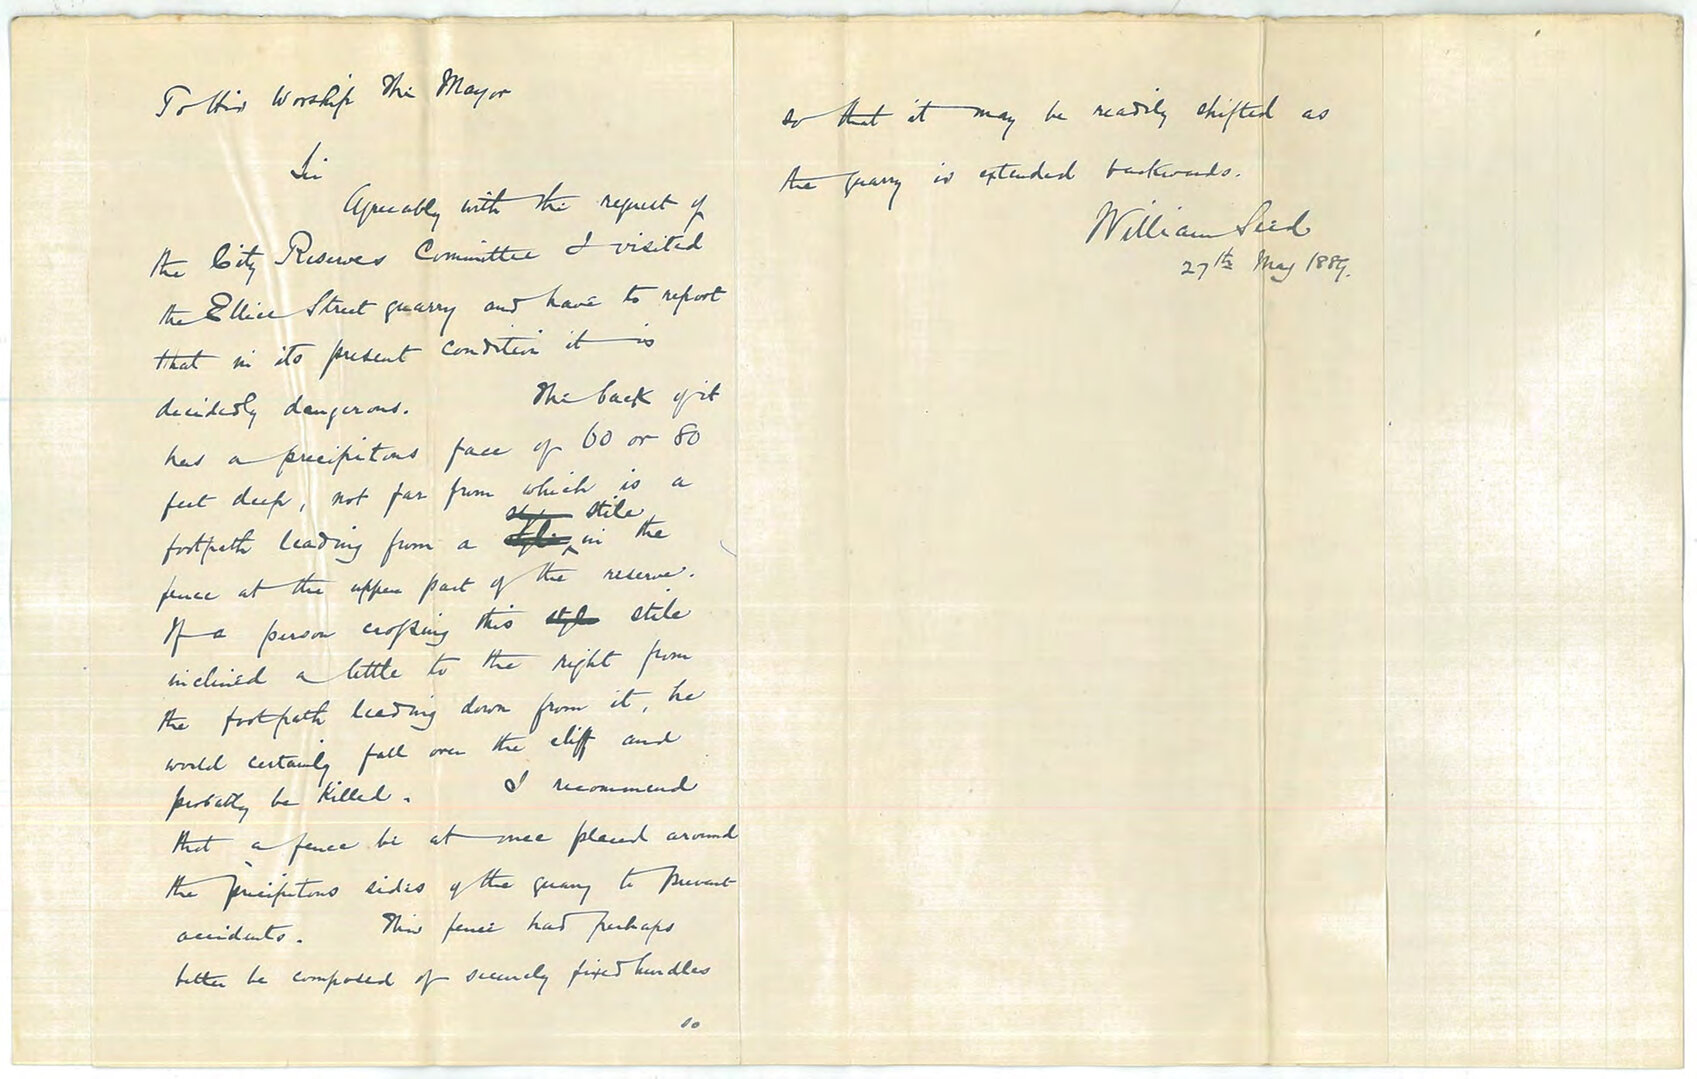 To His Worship the Mayor
Sir
Agreeably with the request of
the City Reserves Committee I visited
the Ellice Street quarry and have to report
that in its present condition it is
decidedly dangerous. The back of it
has a precipitous face of 60 or 80
feet deep, not far from which is a
stile
footpath leading from a in the
fence at the upper part of the reserve.
If a person crossing this style stile
inclined a little to the right from
the footpath leading down from it, he
would certainly fall over the cliff and
probably be killed. I recommend
that a fence be at once placed around
the precipitous sides of the quarry to prevent
accidents. This fence had perhaps
better be composed of securely fixed hurdles
so
so that it may be readily shifted as
the quarry is extended backwards.
William Seed
27th May 1889.